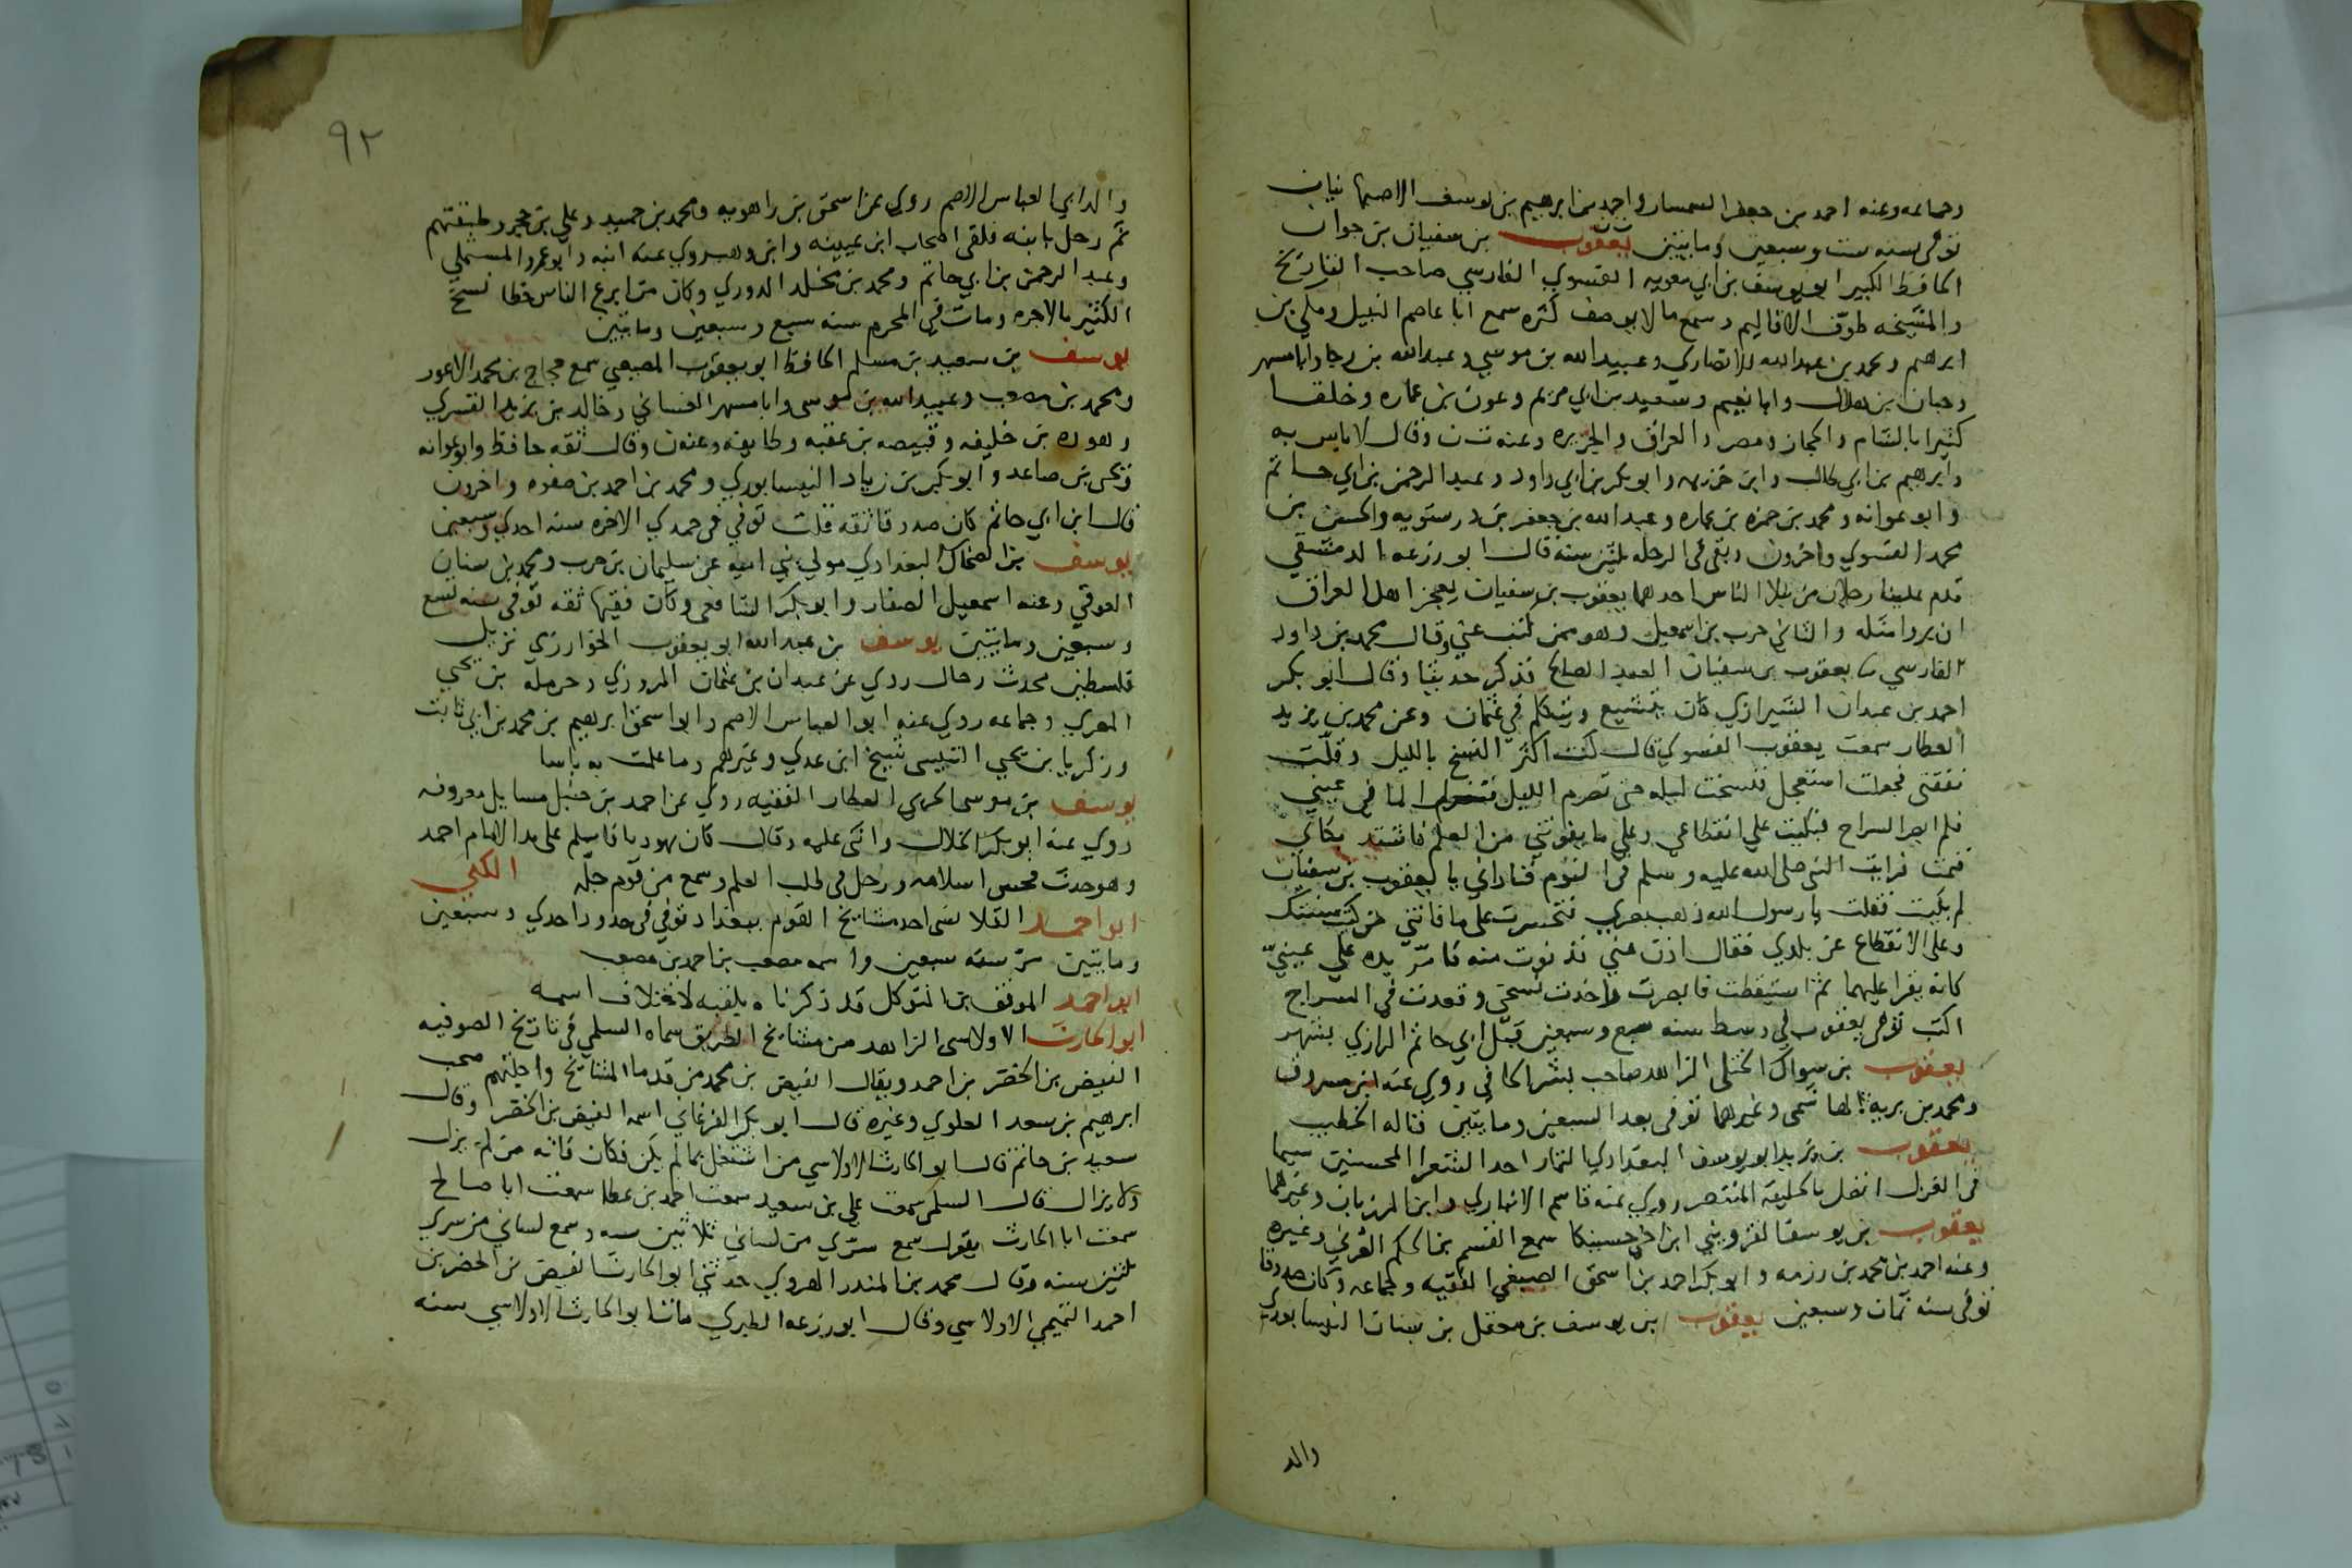 وجماعه وعنه احمد بن جعفر السمسار واحمد بن ابرهيم بن يوسف الاصبهانيان
توفى سنه ست وسبعين ومايتين يعقوب بن سفيان بن جوان
الحافظ الكبير ابو يوسف بن ابي معويه الفسوي الفارسي صاحب التاريخ
والمشيخه طوف الاقاليم وسمع ما لا يوصف كثره سمع ابا عاصم النبيل ومكي بن
ابرهيم ومحمد بن عبد الله الانصاري وعبيد الله بن موسي وعبد الله بن رجا وابا مسهر
وحبان بن هلال وابا نعيم وسعيد بن ابي مريم وعون بن عماره وخلقا
كثيرا بالشام والحجاز ومصر والعراق والجزيره وعنه ت ن وقال لا باس به
وابرهيم بن ابي طالب وابن خزيمه وابو بكر بن ابي داود وعبد الرحمن بن ابي حاتم
وابو عوانه ومحمد بن حمزه بن عماره وعبد الله بن جعفر بن درستويه والحسن بن
محمد الفسوي واخرون وبقى فى الرحله ثلثين سنه قال ابو زرعه الدمشقي
قدم علينا رجلان من نبلا الناس احدهما يعقوب بن سفيان يعجز اهل العراق
ان يروا مثله والثاني حرب بن اسمعيل وهو ممن كتب عني وقال محمد بن داود
الفارسي ثنا يعقوب بن سفيان العبد الصالح فذكر حديثا وقال ابو بكر
احمد بن عبدان الشيرازي كان يتشيع ويتكلم في عثمان وعن محمد بن يزيد
العطار سمعت يعقوب الفسوي قال كنت اكثر النسخ بالليل وقلت
نفقتى فجعلت استعجل فنسخت ليله حتى تصرم الليل فنزل الما في عيني
فلم ابصر السراج فبكيت علي انقطاعي وعلي ما يفوتني من العلم فاشتد بكاي
فنمت فرايت النبي صلى الله عليه وسلم فى النوم فناداني يا يعقوب بن سفيان
لم بكيت فقلت يا رسول الله ذهب بصري فتحسرت على ما فاتني من كتب سنتك
وعلى الانقطاع عن بلدي فقال ادن مني فدنوت منه فامرّ يده علي عينيّ
كانه يقرا عليهما ثم استيقظت فابصرت واخذت نسختي وقعدت فى السراج
اكتب توفى يعقوب في وسط سنه سبع وسبعين قبل ابي حاتم الرازي بشهر
يعقوب بن سواك الختلى الزاهد صاحب بشر الحافي روي عنه ابن مسروق
ومحمد بن بريه الهاشمى وغيرهما توفى بعد السبعين وماتين قاله الخطيب
يعقوب بن يزيد ابو يوسف البغدادي التمار احد الشعرا المحسنين سيما
فى الغزل اتصل بالخليفه المنتصر روي عنه قاسم الانباري وابن المرزبان وغيرهما
يعقوب بن يوسف القزويني ابن اخي حسينكا سمع القسم بن الحكم العرني وغيره
وعنه احمد بن محمد بن رزمه وابو بكر احمد بن اسحق الصبغي الفقيه وجماعه وكان صدوقا
توفى سنه ثمان وسبعين يعقوب بن يوسف بن معقل بن سنان النيسابوري
والد
٩٢
والد ابي العباس الاصم روي عن اسحق بن راهويه ومحمد بن حميد وعلي بن حجر وطبقتهم
ثم رحل بابنه فلقى اصحاب ابن عيينه وابن وهب روي عنه ابنه وابو عمرو المستملي
وعبد الرحمن بن ابي حاتم ومحمد بن مخلد الدوري وكان من ابرع الناس خطا نسخ
الكثير بالاجره ومات في المحرم سنه سبع وسبعين وماتين
يوسف بن سعيد بن مسلم الحافظ ابو يعقوب المصيصي سمع حجاج بن محمد الاعور
ومحمد بن مصعب وعبيد الله بن موسى وابا مسهر الغساني وخالد بن يزيد القسري
وهوذه بن خليفه وقبيصه بن عقبه وطايفه وعنه ن وقال ثقه حافظ وابو عوانه
ويحيى بن صاعد وابو بكر بن زياد النيسابوري ومحمد بن احمد بن صفوه واخرون
قال ابن ابي حاتم كان صدوقا ثقه قلت توفي في جمدي الاخره سنه احدي وسبعين
يوسف بن الضحاك البغدادي مولي بني اميه عن سليمان بن حرب ومحمد بن سنان
العوقي وعنه اسمعيل الصفار وابو بكر الشافعى وكان فقيها ثقه توفى سنه تسع
وسبعين وماتيتين يوسف بن عبد الله ابو يعقوب الخوارزمي نزيل
فلسطين محدث رحال روي عن عبدان بن عثمان المروزي وحرمله بن يحيي
المصري وجماعه روي عنه ابو العباس الاصم وابو اسحق ابرهيم بن محمد بن ابي ثابت
وزكريا بن يحيي التنيسى شيخ ابن عدي وغيرهم وما علمت به باسا
يوسف بن موسى الحربي العطار الفقيه روي عن احمد بن حنبل مسايل معروفه
روي عنه ابو بكر الخلال واثنى عليه وقال كان يهوديا فاسلم على يد الامام احمد
وهو حدث فحسن اسلامه ورحل فى طلب العلم وسمع من قوم جلّه الكنى
ابو احمد القلانسى احد مشايخ القوم ببغداد توفي فى حدود احدي وسبعين
وماتيين مرّ سنه سبعين واسمه مصعب بن احمد بن مصعب
ابو احمد الموفق بن المتوكل قد ذكرناه بلقبه لاختلاف اسمه
ابو الحارث الاولاسى الزاهد من مشايخ الطريق سماه السلمي فى تاريخ الصوفيه
الفيض بن الخضر بن احمد ويقال الفيض بن محمد من قدما المشايخ واجلتهم صحب
ابرهيم بن سعد العلوي وغيره قال ابو بكر الفرغاني اسمه الفيض بن الخضر وقال
سعيد بن حاتم قال ابو الحارث الاولاسي من اشتغل بما لم يكن فكان فاته من لم يزل
ولا يزال قال السلمى سمعت علي بن سعيد سمعت احمد بن عطا سمعت ابا صالح
سمعت ابا الحارث يقول سمع سرّي من لساني ثلاثين سنه وسمع لساني من سري
ثلثين سنه وقال محمد بن المنذر الهروي حدثني ابو الحارث الفيض بن الخضر بن
احمد التميمي الاولاسي وقال ابو زرعه الطبري مات ابو الحارث الاولاسي سنه